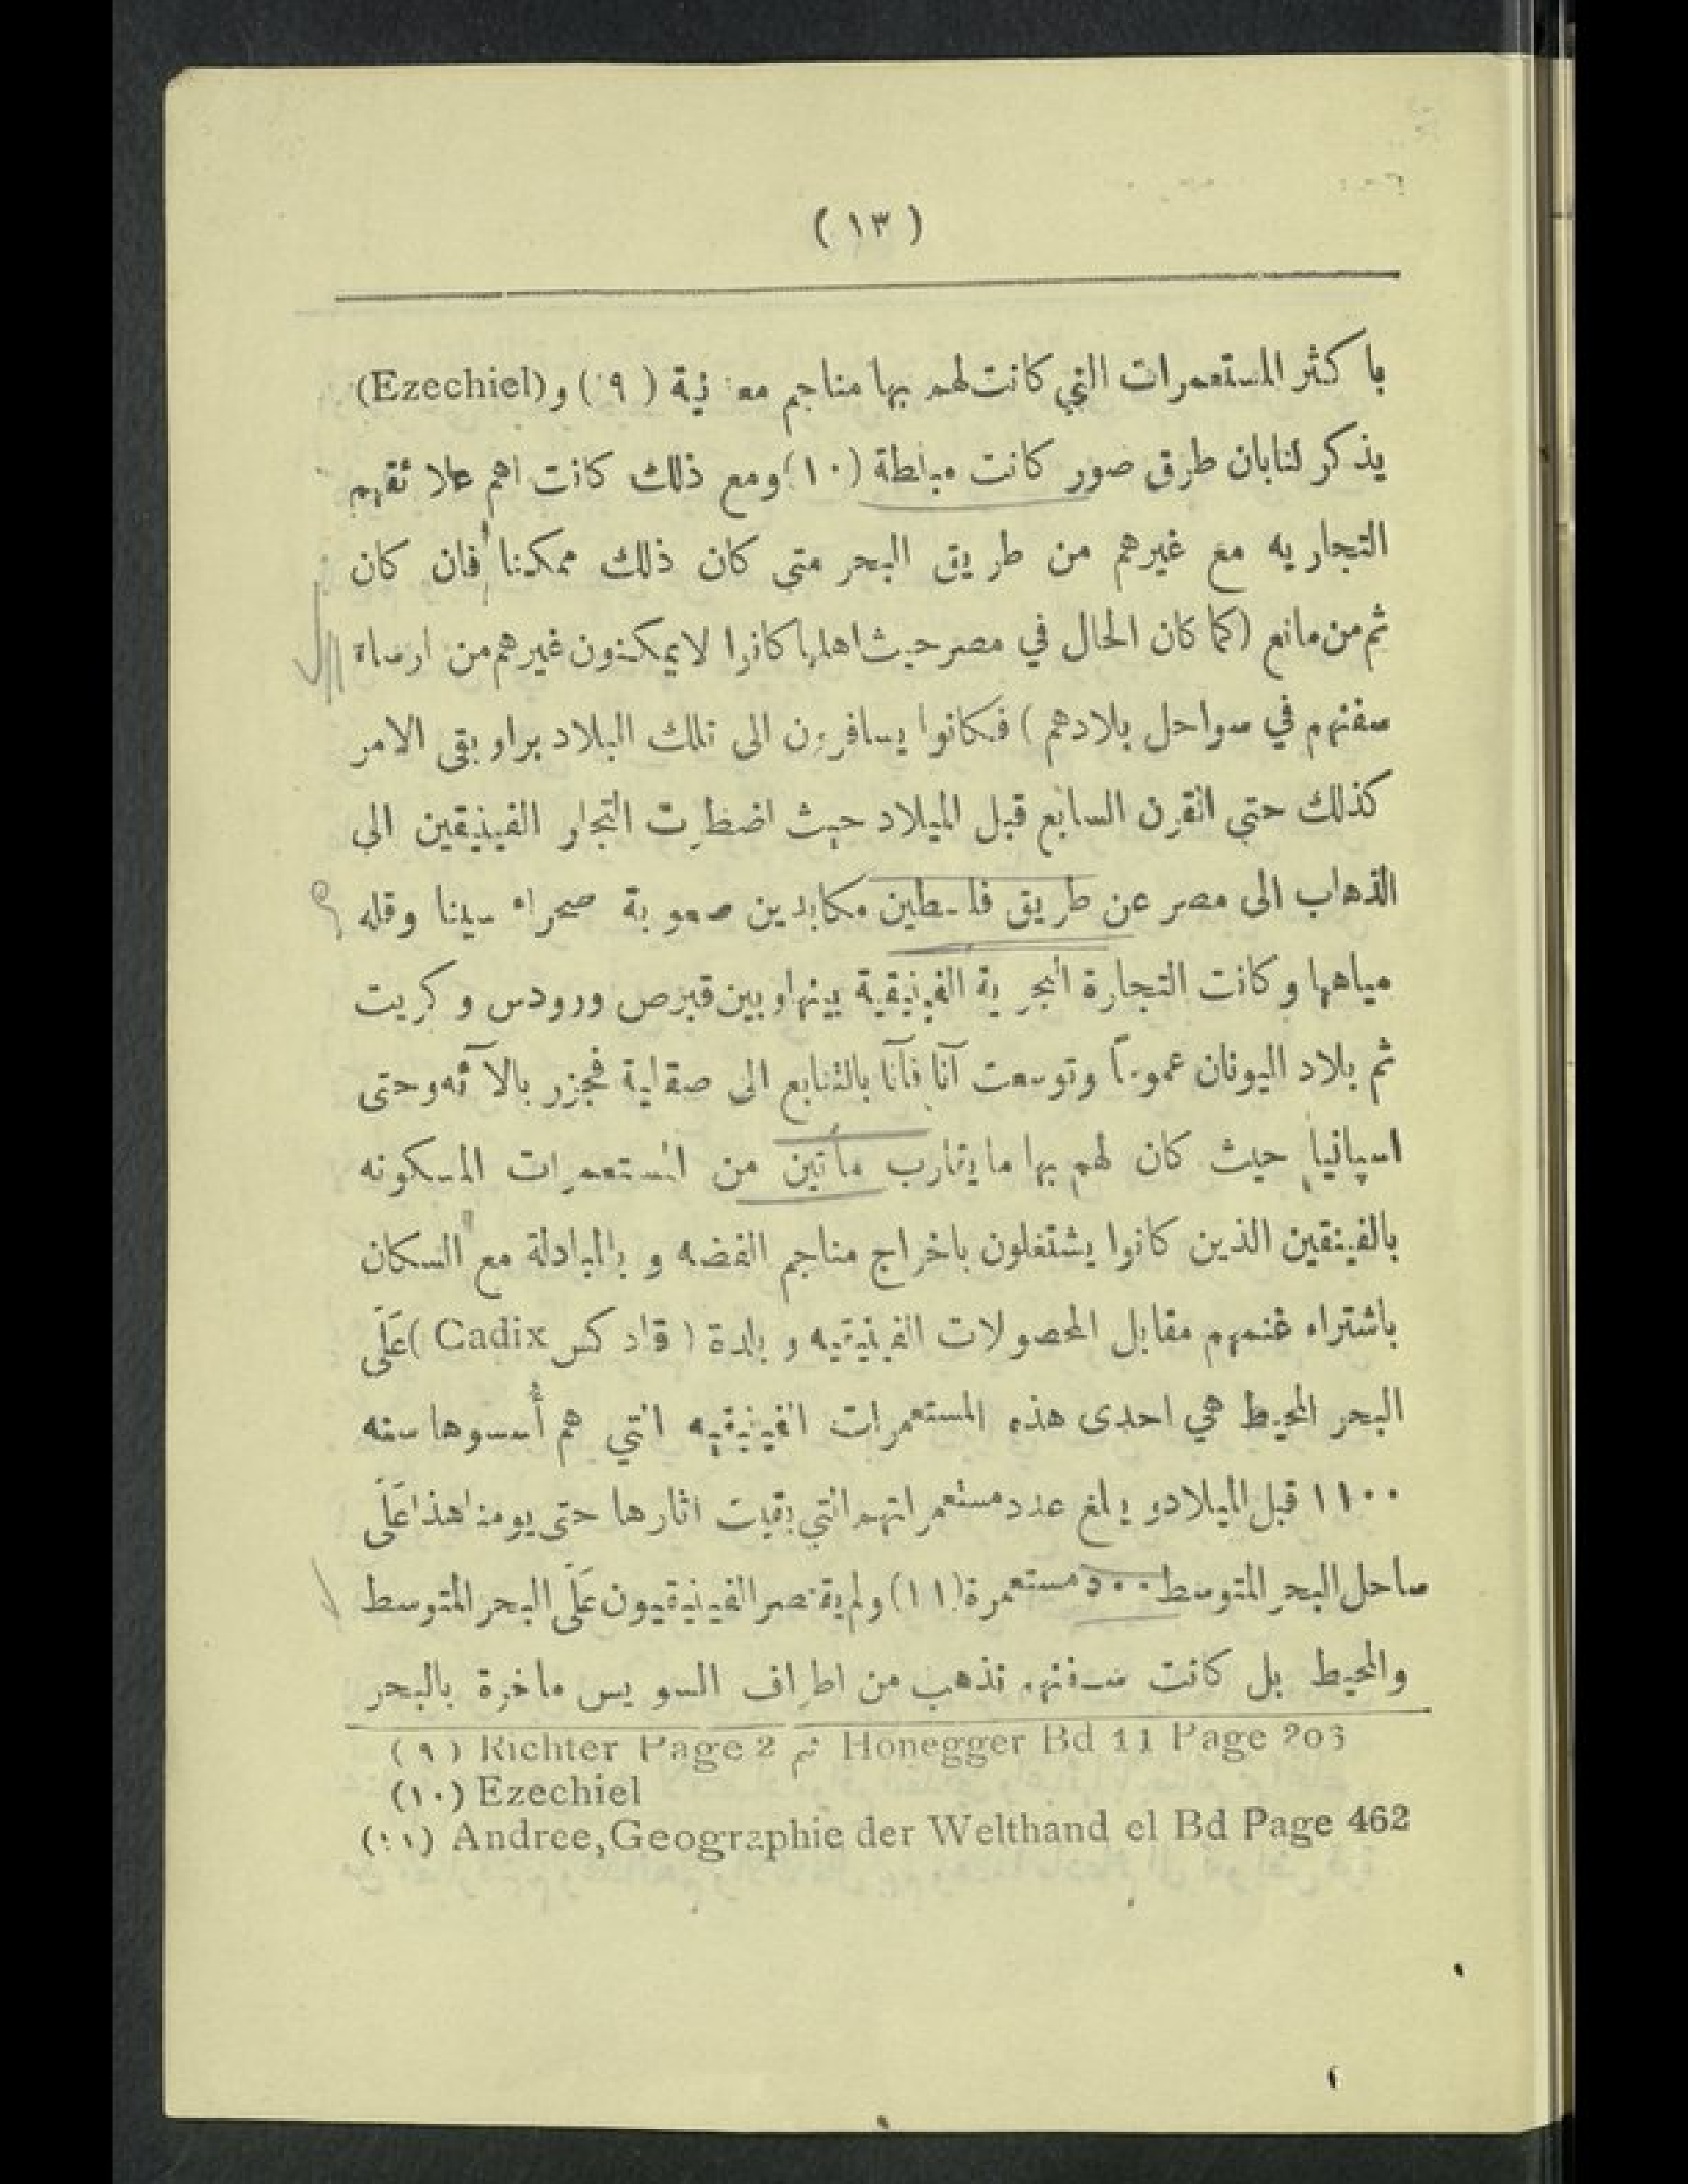 ( ١٣ )
باكثر المستعمرات التي كانت لهم بها مناجم معدنية ( ٩ ) و (Ezechiel)
يذكر لنا بان طرق صور كانت مبلطة (١٠) ومع ذلك كانت اهم علائقهم
التجاريه مع غيرهم من طريق البحر متى كان ذلك ممكنا فان كان
ثم من مانع (كما كان الحال في مصر حيث اهلها كانوا لا يمكنون غيرهم من ارساء
سفنهم في سواحل بلادهم ) فكانوا يسافرون الى تلك البلاد برا وبقى الامر
كذلك حتي القرن السابع قبل الميلاد حيث اضطرت التجار الفينيقين الي
الذهاب الى مصر عن طريق فلسطين مكابدين صعوبة صحراء سينا وقله
مياهها وكانت التجارة البحرية الفينيقية بينها وبين قبرص ورودس وكريت
ثم بلاد اليونان عموماً وتوسعت آنا فآنا بالتتابع الى صقلية فجزر بالآئه وحتى
اسپانيا حيث كان لهم بها ما يقارب مأتين من المستعمرات المسكونه
بالفينقين الذين كانوا يشتغلون باخراج مناجم الفضه و بالمبادلة مع السكان
باشتراء غنمهم مقابل المحصولات الفينيقيه و بلدة ( قادكس Cadix ) عَلَى
البحر المحيط هي احدى هذه المستعمرات الفينيقيه التي هم أسسوها سنه
١١٠٠ قبل الميلاد و يبلغ عدد مستعمراتهم التي بقيت اثارها حتى يومنا هذا عَلَى
ساحل البحر المتوسط ٥٠٠ مستعمرة (١١) ولم يقتصر الفينيقيون عَلَى البحر المتوسط
والمحيط بل كانت سفنهم تذهب من اطراف السويس ماخرة بالبحر
(٩) Richter Page 2 ثم Honegger Bd 11 Page 203
(١٠) Ezechiel
(١١) Andree, Geographie der Welthand el Bd Page 462